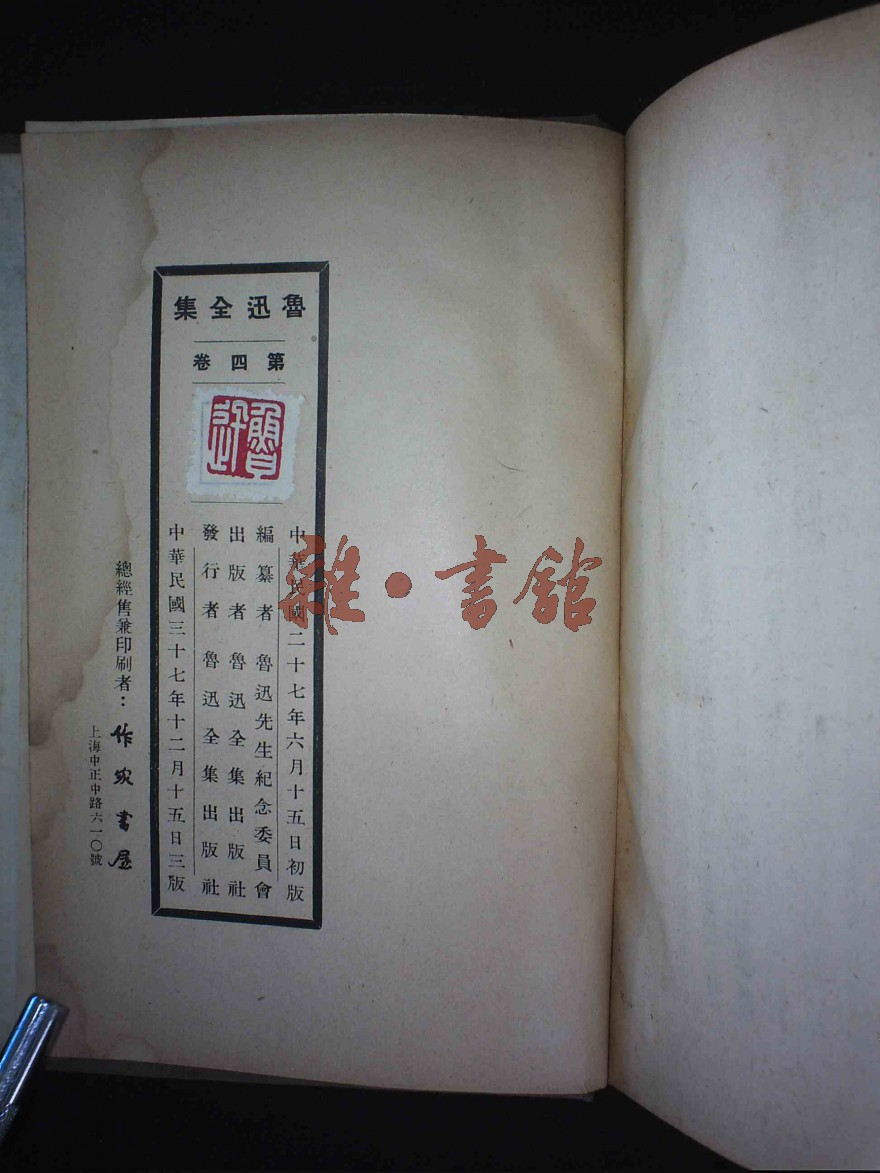 魯迅全集
第四卷
魯迅
中華民國二十七年六月十五日初版
編纂者 魯迅先生紀念委員會
出版者 魯迅全集出版社
發行者 魯迅全集出版社
中華民國三十七年十二月十五日三版
總經售兼印刷者：作家書屋
上海中正中路六一〇號
雜·書館